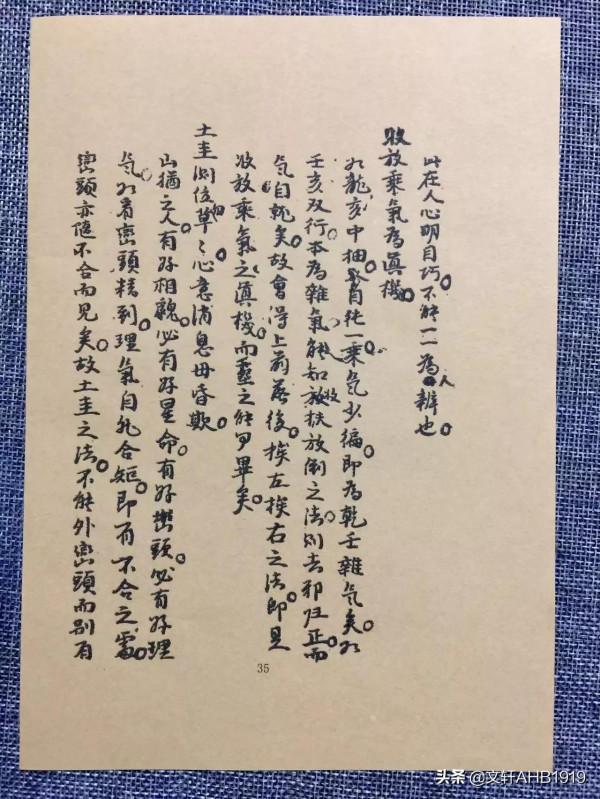 此在人心明目巧。不能一一為人辨也。
收放乘氣為真機。
如龍亥中抽。自純一乘气少偏。即為乾壬雜气矣。如
壬亥双行。本為雜氣。能知收放扶放倒之法。则去邪归正。而
气自純矣。故會得上前落後。挨左挨右之法。即是
收放乘氣之真機。而之能事畢矣。
土圭测候草細々心意消息毋昏欺。
山猶之人。有好相貌。必有好星命。有好巒頭。必有好理
气。如看巒頭精到。理氣自然合矩。即有不合之處。
巒頭亦隨不合而見矣。故土圭之法。不能外巒頭而别有
35
头条@文轩AHB1919